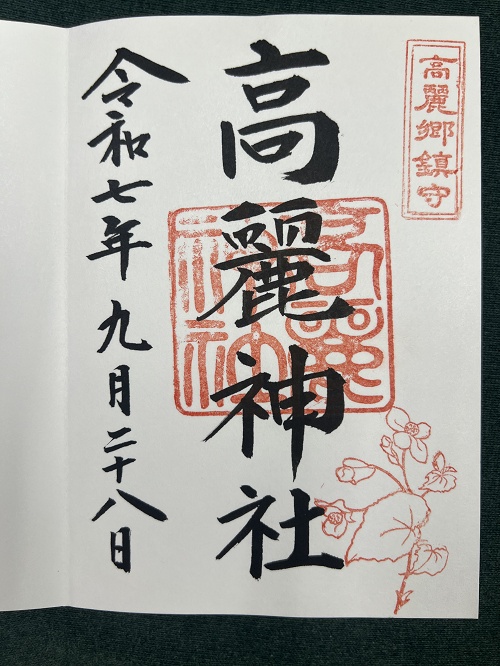 高麗郷鎮守
高麗神社
令和七年九月二十八日